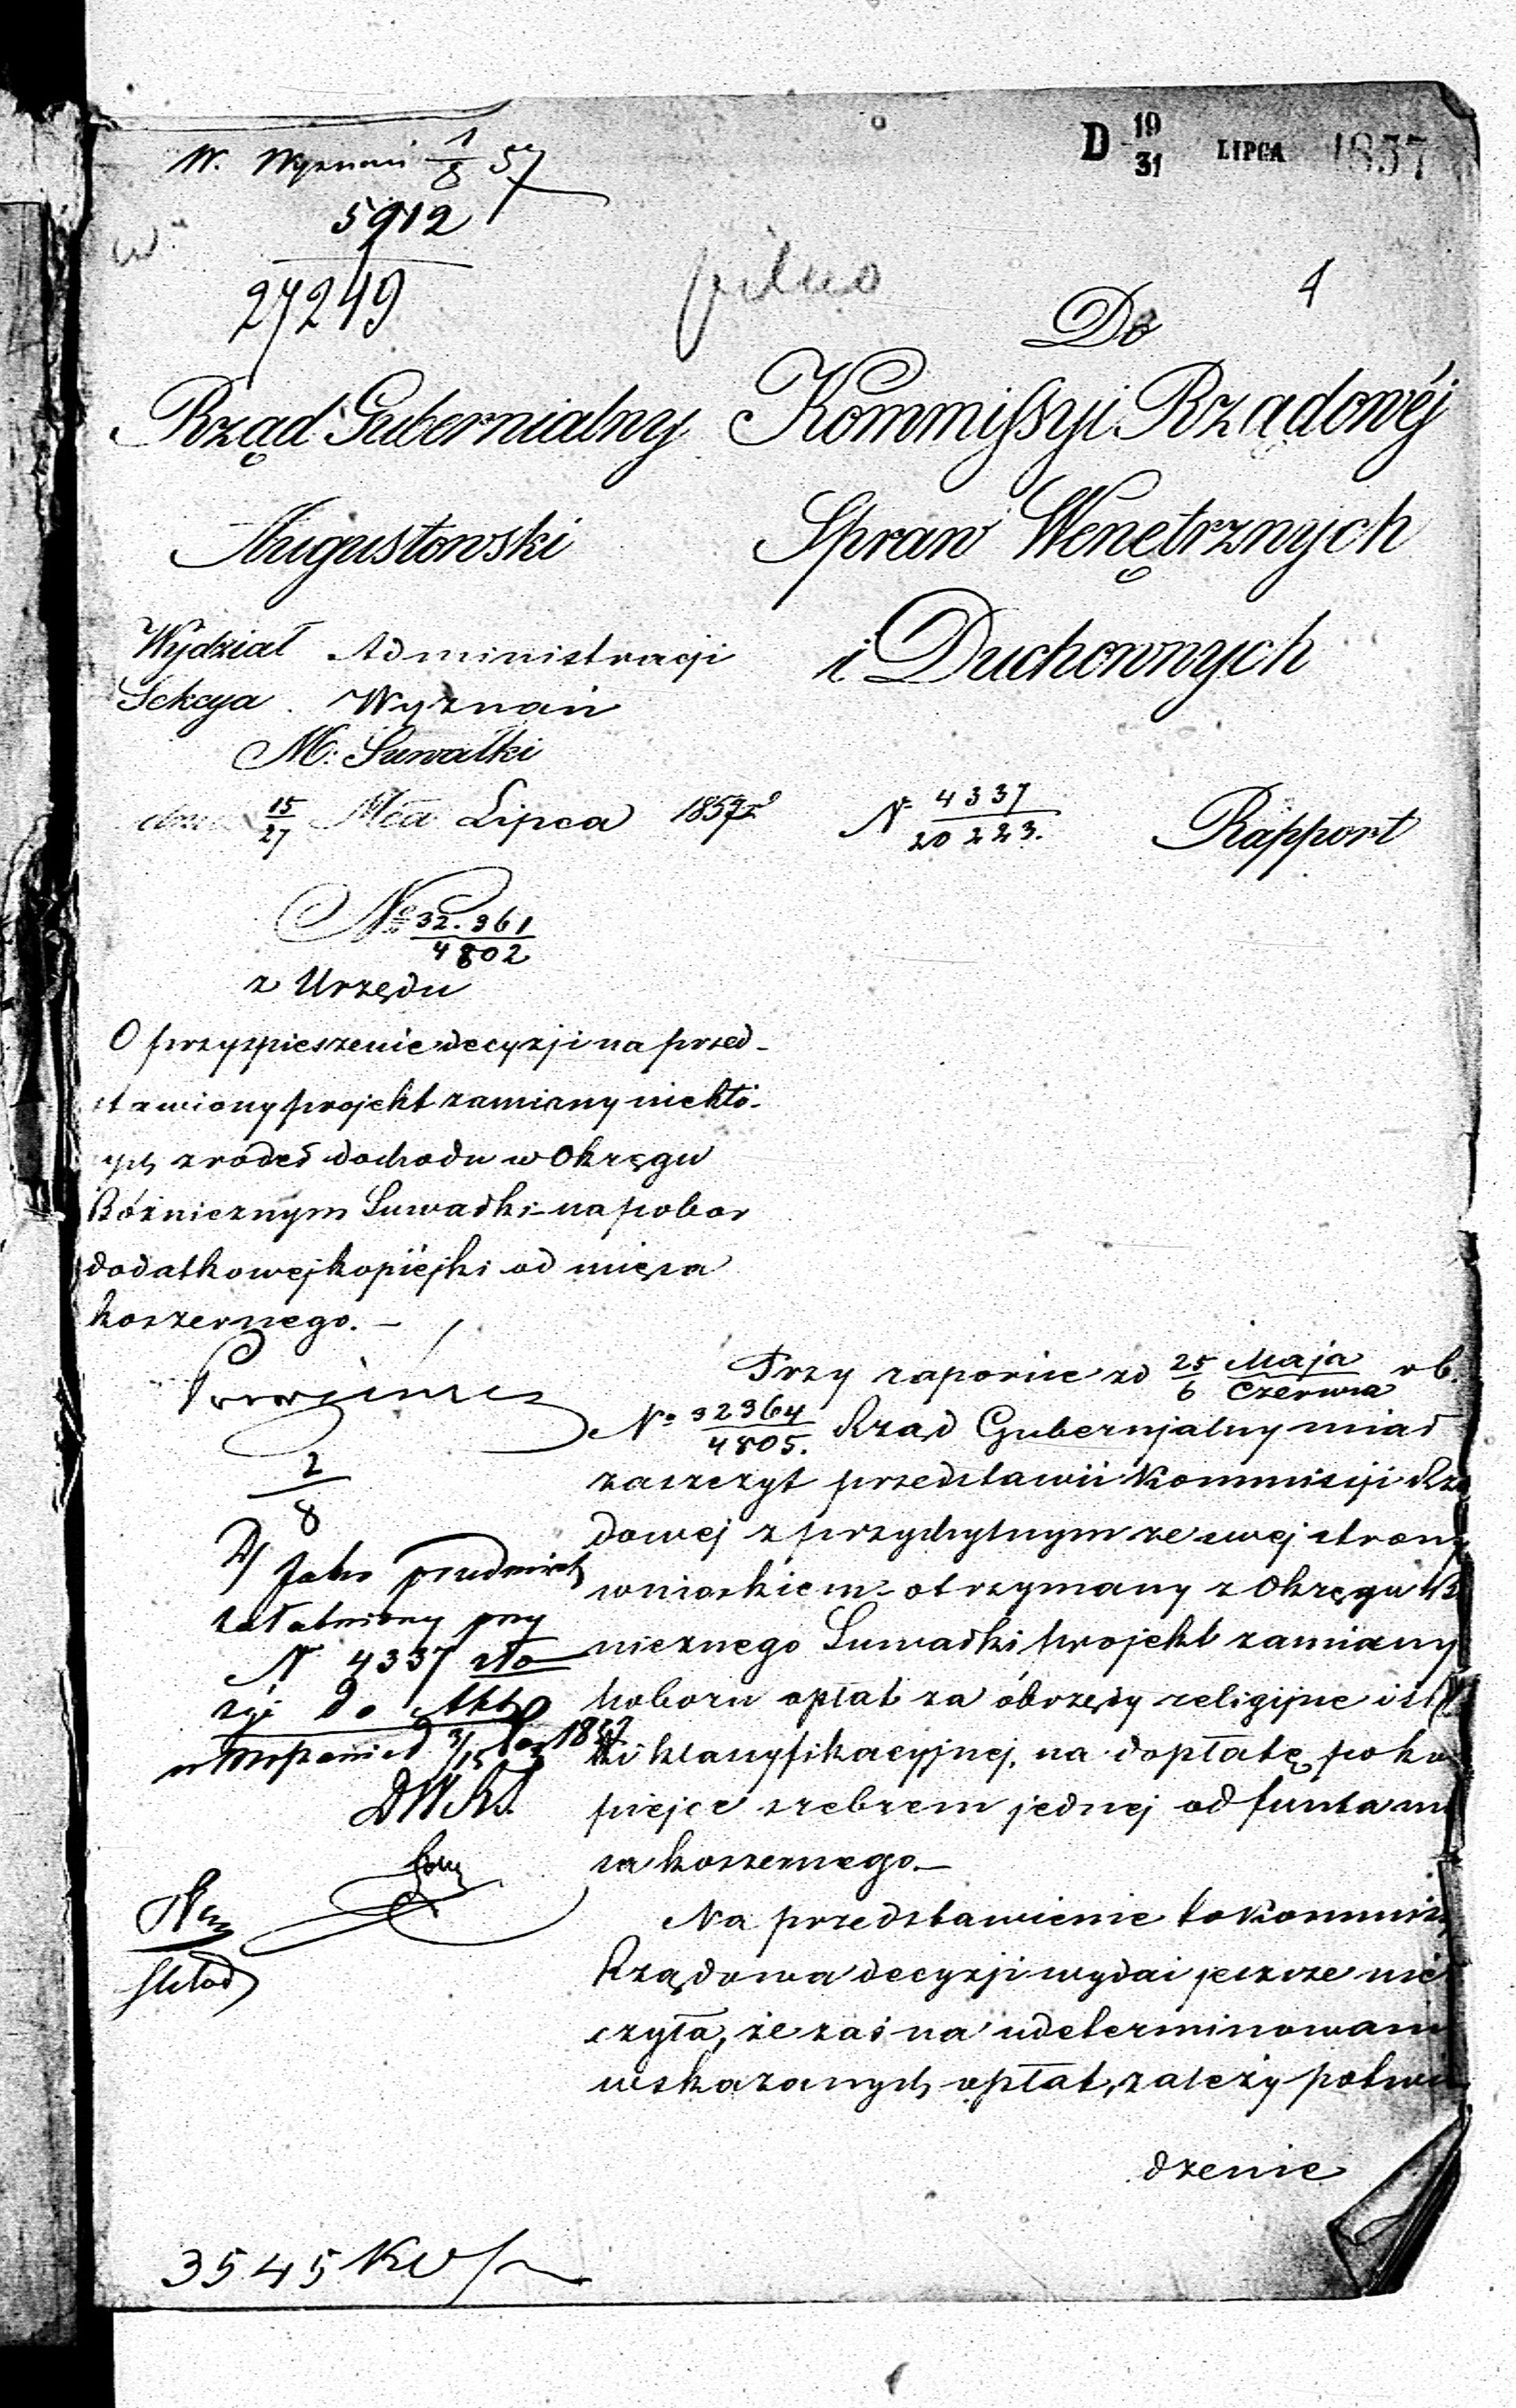 W. Wyznań 1/8 57
5912
27249
D 19/31 LIPCA 1857
pilno
4
Do
Rząd Gubernialny
Augustowski
Kommissyi Rządowéj
Spraw Wenętrznych
i Duchownych
Wydział Administracji
Sekcya Wyznań
M. Suwałki
dnia 15/27 Mca Lipca 1857 r
N 4337/20223.
Rapport
No 32.361/4802
z Urzędu
O przyspieszenie decyzji na przed-
stawiony projekt zamiany niektó-
rych zródeł dochodu w Okręgu
Bóźnicznym Suwałki na pobor
dodatkowej kopiejki od mięsa
koszernego. —
2/8
Przy raporcie zd 25 Maja/6 Czerwca r b.
No 32364/4805. Rząd Gubernjalny miał
zaszczyt przedstawić Kommissji Rzą
dowej z przychylnym ze swej strony
wnioskiem otrzymany z Okręgu Bó
nicznego Suwałki projekt zamiany
poboru opłat za obrzędy religijne i skł
ki klassyfikacyjnej, na dopłatę po ko
piejce srebrem jednej od funta mię
sa koszernego. —
Na przedstawienie to Kommiss
Rządowa decyzji wydać jeszcze nie
czyła, że zaś na udeterminowani
wskazanych opłat, zależy potwie
dzenie
Jako przedmiot
załatwiony przy
N 4337 sto
3545 KW